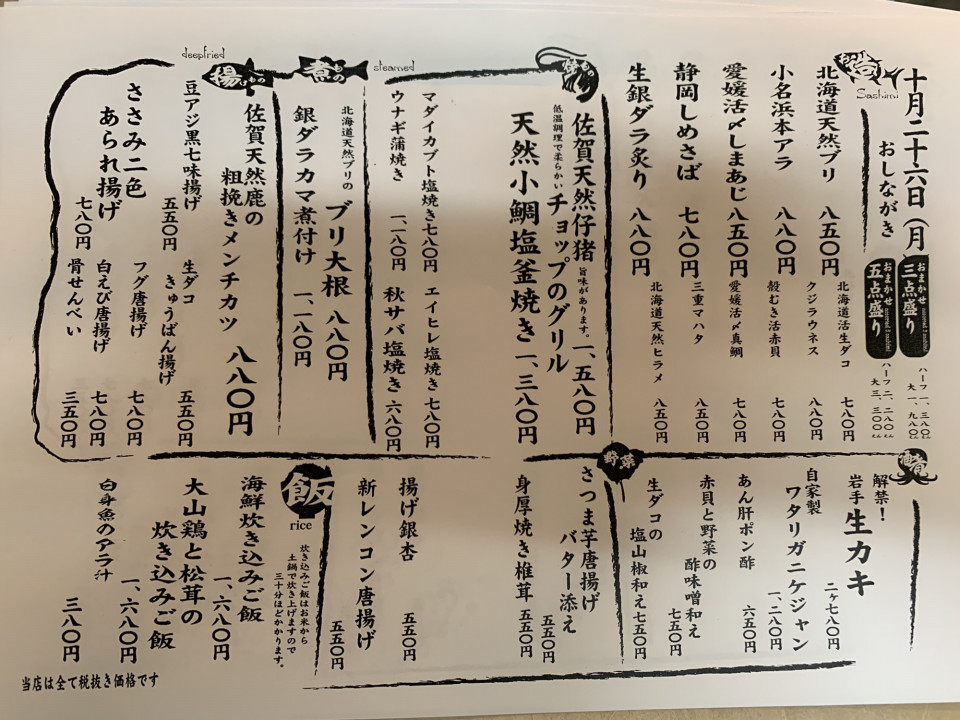 十月二十六日(月)
おしながき
おまかせ
三点盛り
ハーフ 一、三八〇
大 一、九八〇
おまかせ
五点盛り
ハーフ 二、二八〇
大 三、三〇〇
Sashimi
北海道天然ブリ 八五〇円
小名浜本アラ 八八〇円
愛媛活〆しまあじ 八五〇円
静岡しめさば 七八〇円
生銀ダラ炙り 八八〇円
北海道活生ダコ 七八〇円
クジラウネス 八八〇円
殻むき活赤貝 七八〇円
愛媛活〆真鯛 七八〇円
三重マハタ 八五〇円
北海道天然ヒラメ 八五〇円
焼もの
佐賀天然仔猪
チョップのグリル 一、五八〇円
旨味があります。
低温調理で柔らかい
天然小鯛塩釜焼き 一、三八〇円
マダイカブト塩焼き 七八〇円
エイヒレ塩焼き 七八〇円
ウナギ蒲焼き 一、一八〇円
秋サバ塩焼き 六八〇円
煮もの
steamed
北海道天然ブリの
ブリ大根 八八〇円
銀ダラカマ煮付け 一、一八〇円
deepfried
揚
佐賀天然鹿の
粗挽きメンチカツ 八八〇円
豆アジ黒七味揚げ 五五〇円
生ダコ
きゅうばん揚げ 五五〇円
ささみ二色
あられ揚げ 七八〇円
フグ唐揚げ 七八〇円
白えび唐揚げ 七八〇円
骨せんべい 三五〇円
肴
解禁!
岩手生カキ 二ヶ七八〇円
自家製
ワタリガニケジャン 一、二八〇円
あん肝ポン酢 六五〇円
赤貝と野菜の
酢味噌和え 七五〇円
生ダコの
塩山椒和え 七五〇円
野菜
さつま芋唐揚げ
バター添え 五五〇円
身厚焼き椎茸 五五〇円
揚げ銀杏 五五〇円
新レンコン唐揚げ 五五〇円
飯
rice
炊き込みご飯はお米から
土鍋で炊き上げますので
三十分ほどかかります。
海鮮炊き込みご飯 一、六八〇円
大山鶏と松茸の
炊き込みご飯 一、六八〇円
白身魚のアラ汁 三八〇円
当店は全て税抜き価格です